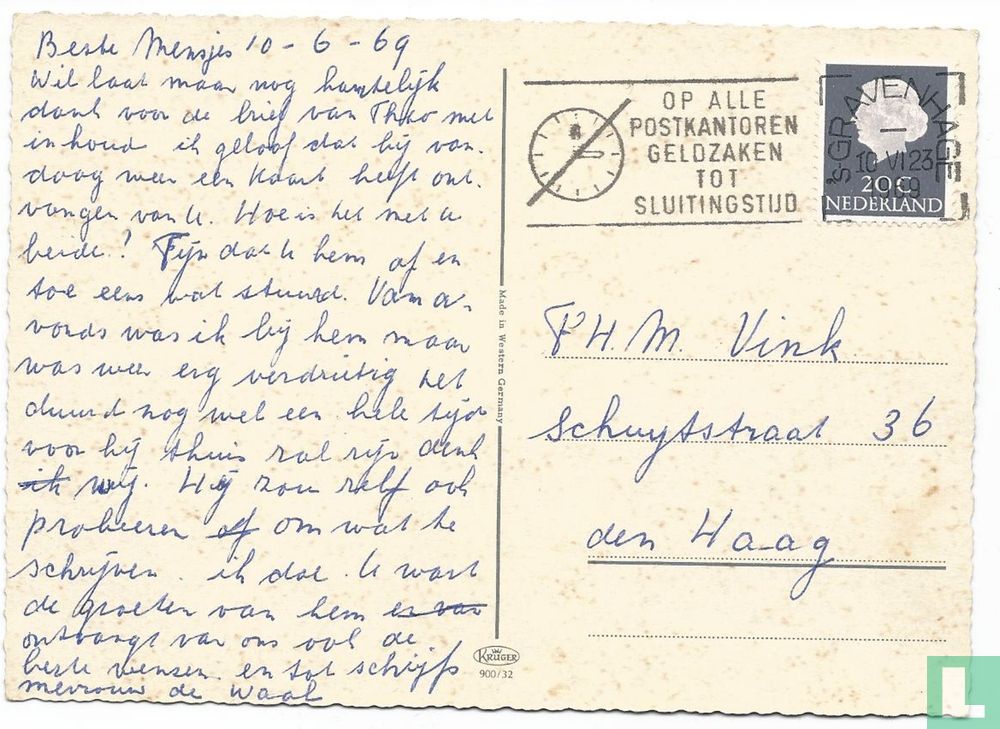 Beste Mensjes 10-6-69
Wil laat maar nog hartelijk
dank voor de brief van Theo met
inhoud ik geloof dat hij van.
daag weer een kaart heeft ont.
vangen van U. Hoe is het met U
beide? Fijn dat U hem af en
toe eens wat stuurd. Van a-
vonds was ik bij hem maar
was weer erg verdrietig het
duurd nog wel een hele tijd
voor hij thuis zal zijn denk
ik wij. Hij zou zelf ook
proberen of om wat te
schrijven. ik doe. U
de groeten van hem en van
ontvangt van ons ook de
beste wensen. en tot schrijfs
mevrouw de Waal
OP ALLE
POSTKANTOREN
GELDZAKEN
TOT
SLUITINGSTIJD
'sGRAVENHAGE
10 VI 23
20 c
NEDERLAND
Made in Western Germany
F.H.M. Vink
Schuytstraat 36
den Haag
KRÜGER
900/32
L